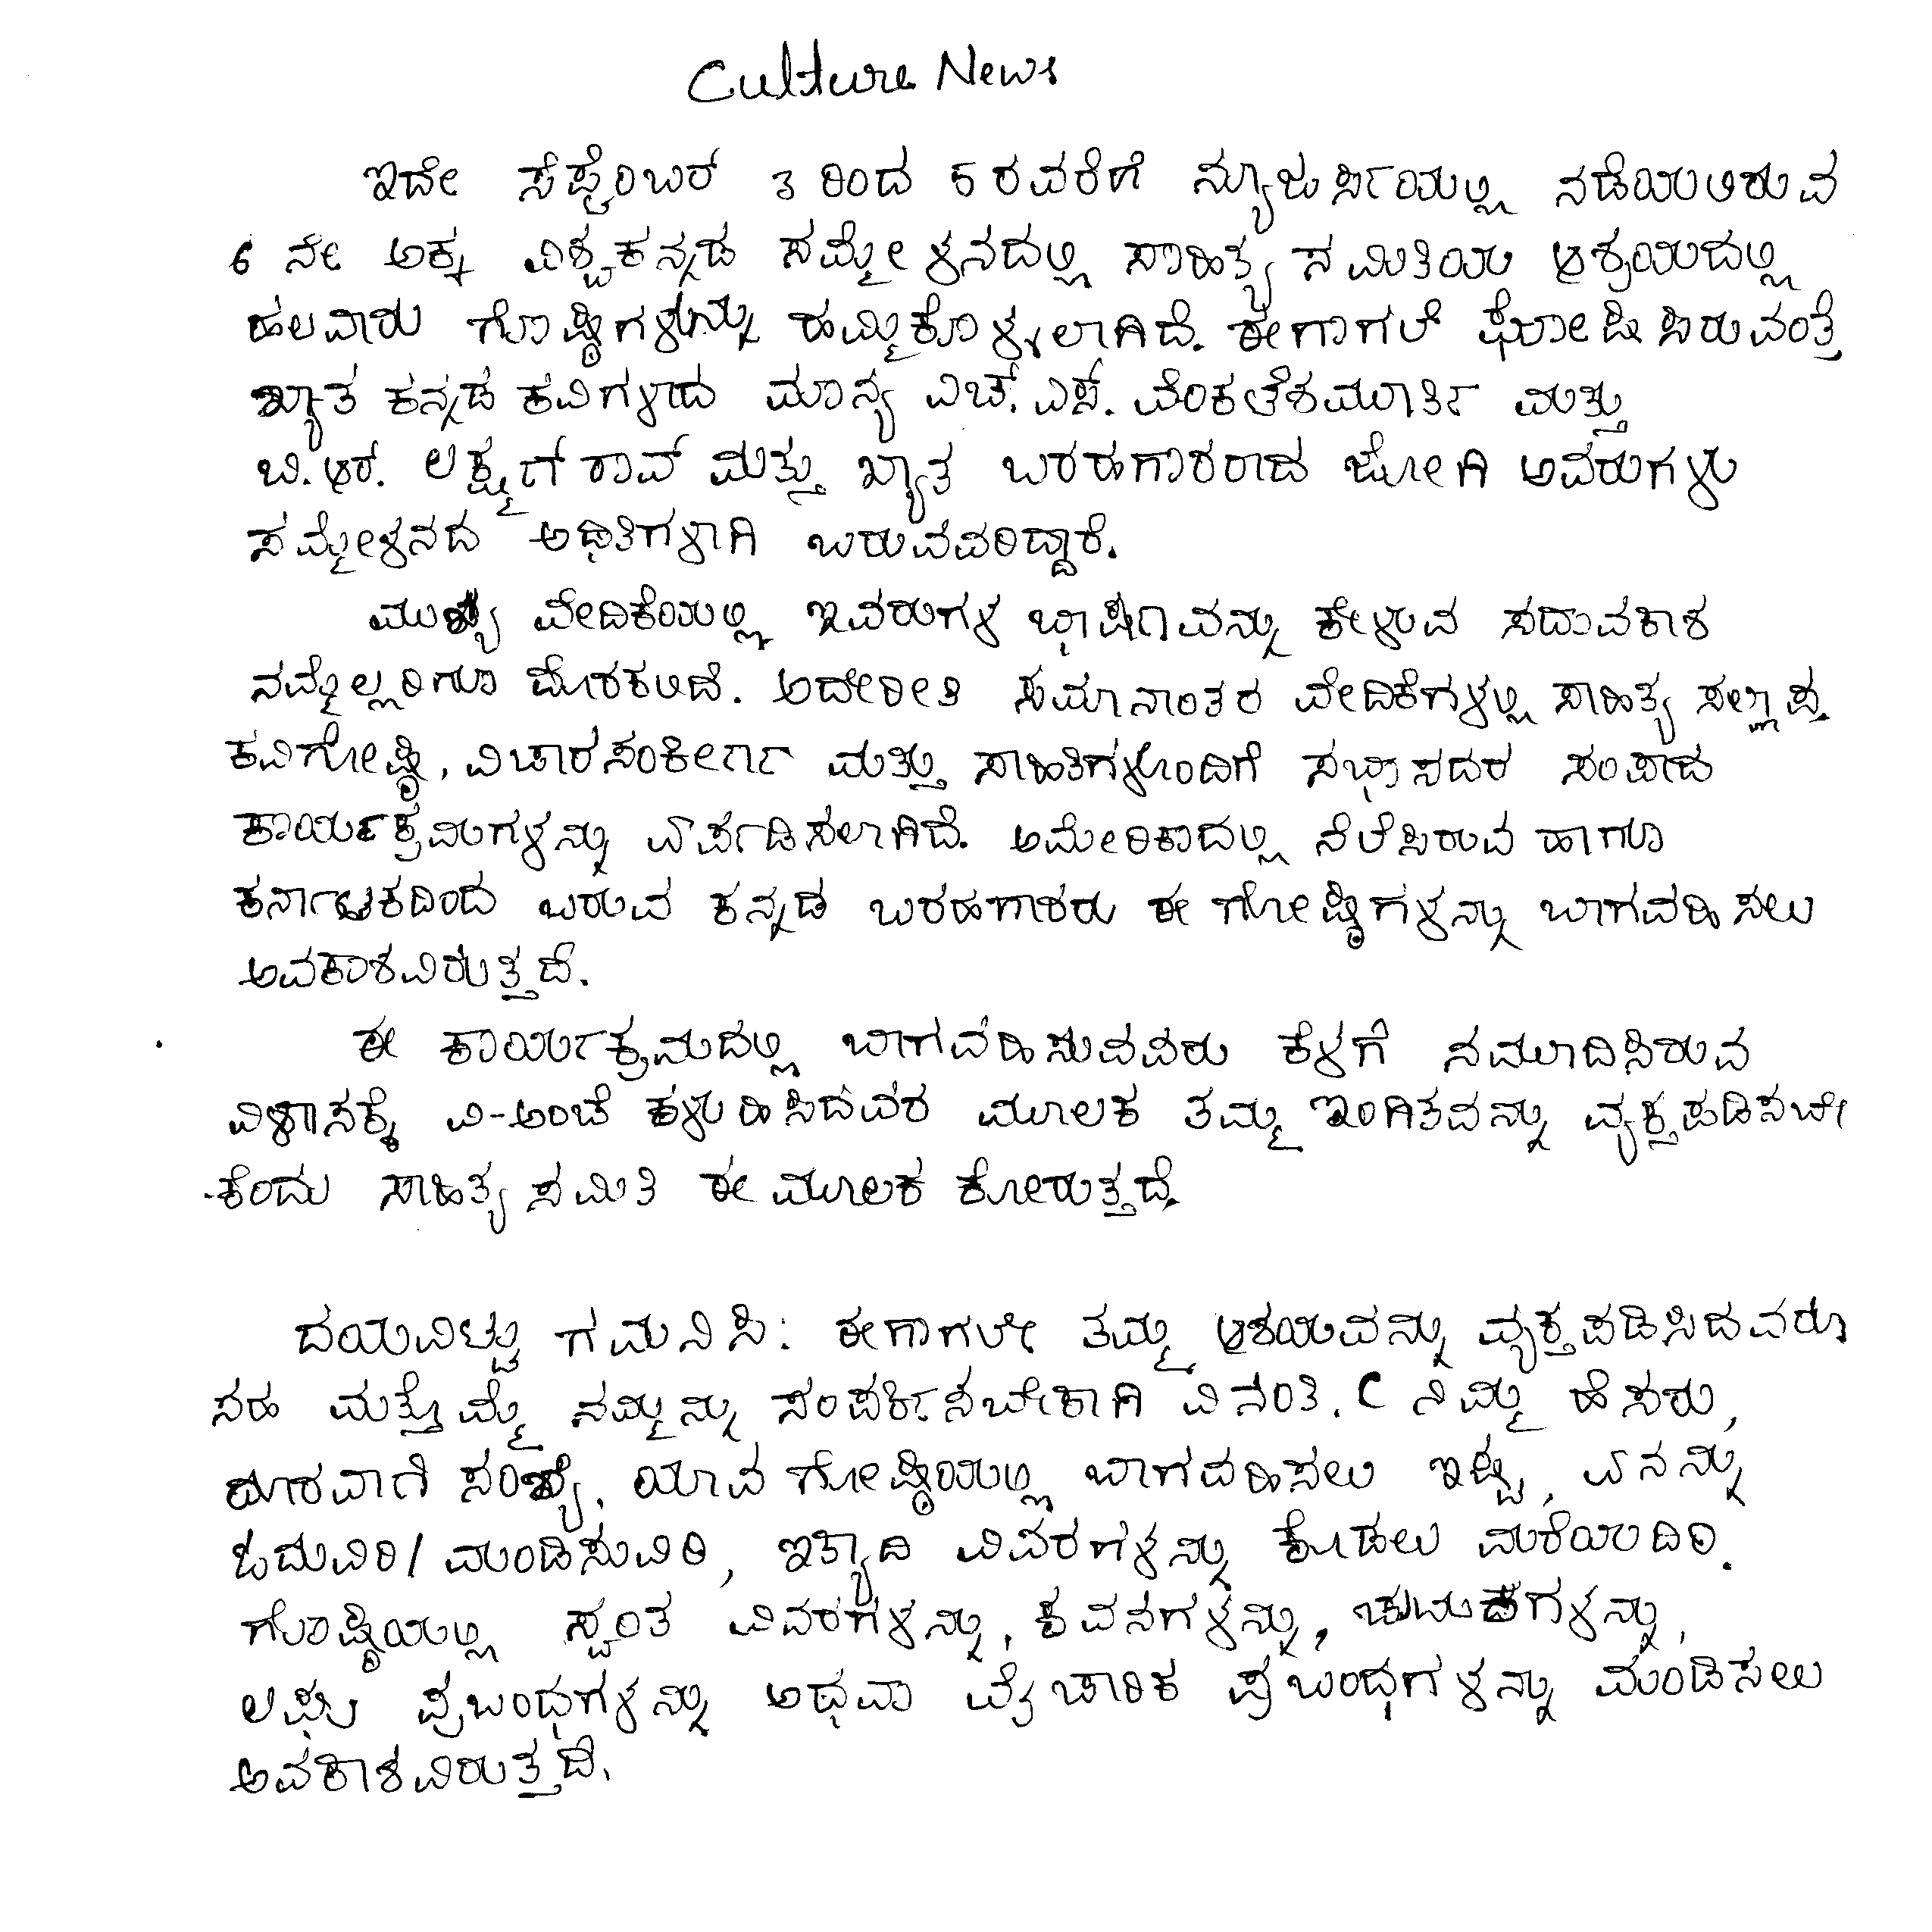 Culture News
ಇದೇ ಸೆಪ್ಟೆಂಬರ್ 3 ರಿಂದ 5 ರವರೆಗೆ ನ್ಯೂಜರ್ಸಿಯಲ್ಲಿ ನಡೆಯಲಿರುವ
6 ನೇ ಅಕ್ಕ ವಿಶ್ವಕನ್ನಡ ಸಮ್ಮೇಳನದಲ್ಲಿ ಸಾಹಿತ್ಯ ಸಮಿತಿಯ ಆಶ್ರಯದಲ್ಲಿ
ಹಲವಾರು ಗೋಷ್ಠಿಗಳನ್ನು ಹಮ್ಮಿಕೊಳ್ಳಲಾಗಿದೆ. ಈಗಾಗಲೆ ಘೋಷಿಸಿರುವಂತೆ
ಖ್ಯಾತ ಕನ್ನಡ ಕವಿಗಳಾದ ಮಾನ್ಯ ಎಚ್. ಎಸ್. ವೆಂಕಟೇಶಮೂರ್ತಿ ಮತ್ತು
ಬಿ. ಆರ್. ಲಕ್ಷ್ಮಣ್ ರಾವ್ ಮತ್ತು ಖ್ಯಾತ ಬರಹಗಾರರಾದ ಜೋಗಿ ಅವರುಗಳು
ಸಮ್ಮೇಳನದ ಅಥಿತಿಗಳಾಗಿ ಬರುವವರಿದ್ದಾರೆ.
ಮುಖ್ಯ ವೇದಿಕೆಯಲ್ಲಿ ಇವರುಗಳ ಭಾಷಣವನ್ನು ಕೇಳುವ ಸದಾವಕಾಶ
ನಮ್ಮೆಲ್ಲರಿಗೂ ದೊರಕಲಿದೆ. ಅದೇರೀತಿ ಸಮಾನಾಂತರ ವೇದಿಕೆಗಳಲ್ಲಿ ಸಾಹಿತ್ಯ ಸಲ್ಲಾಪ,
ಕವಿಗೋಷ್ಠಿ, ವಿಚಾರಸಂಕೀರ್ಣ ಮತ್ತು ಸಾಹಿತಿಗಳೊಂದಿಗೆ ಸಭಾಸದರ ಸಂವಾದ
ಕಾರ್ಯಕ್ರಮಗಳನ್ನು ಏರ್ಪಡಿಸಲಾಗಿದೆ. ಅಮೇರಿಕಾದಲ್ಲಿ ನೆಲೆಸಿರುವ ಹಾಗೂ
ಕರ್ನಾಟಕದಿಂದ ಬರುವ ಕನ್ನಡ ಬರಹಗಾರರು ಈ ಗೋಷ್ಠಿಗಳನ್ನು ಬಾಗವಹಿಸಲು
ಅವಕಾಶವಿರುತ್ತದೆ.
ಈ ಕಾರ್ಯಕ್ರಮದಲ್ಲಿ ಬಾಗವಹಿಸುವವರು ಕೆಳಗೆ ನಮೂದಿಸಿರುವ
ವಿಳಾಸಕ್ಕೆ ವಿ-ಅಂಚೆ ಕಳುಹಿಸಿದವರ ಮೂಲಕ ತಮ್ಮ ಇಂಗಿತವನ್ನು ವ್ಯಕ್ತಪಡಿಸಬೇ
-ಕೆಂದು ಸಾಹಿತ್ಯ ಸಮಿತಿ ಈ ಮೂಲಕ ಕೋರುತ್ತದೆ.
ದಯವಿಟ್ಟು ಗಮನಿಸಿ: ಈಗಾಗಲೇ ತಮ್ಮ ಆಶಯವನ್ನು ವ್ಯಕ್ತಪಡಿಸಿದವರೂ
ಸಹ ಮತ್ತೊಮ್ಮೆ ನಮ್ಮನ್ನು ಸಂಪರ್ಕಿಸಬೇಕಾಗಿ ವಿನಂತಿ. ( ನಿಮ್ಮ ಹೆಸರು,
ದೂರವಾಣಿ ಸಂಖ್ಯೆ, ಯಾವ ಗೋಷ್ಠಿಯಲ್ಲಿ ಬಾಗವಹಿಸಲು ಇಷ್ಟ, ಏನನ್ನು
ಓದುವಿರಿ/ ಮಂಡಿಸುವಿರಿ, ಇತ್ಯಾದಿ ವಿವರಗಳನ್ನು ಕೊಡಲು ಮರೆಯದಿರಿ.
ಗೋಷ್ಠಿಯಲ್ಲಿ ಸ್ವಂತ ವಿವರಗಳನ್ನು, ಕವನಗಳನ್ನು, ಚುಟುಕಗಳನ್ನು,
ಲಘು ಪ್ರಬಂಧಗಳನ್ನು ಅಥವಾ ವೈಚಾರಿಕ ಪ್ರಬಂಧಗಳನ್ನು ಮಂಡಿಸಲು
ಅವಕಾಶವಿರುತ್ತದೆ.